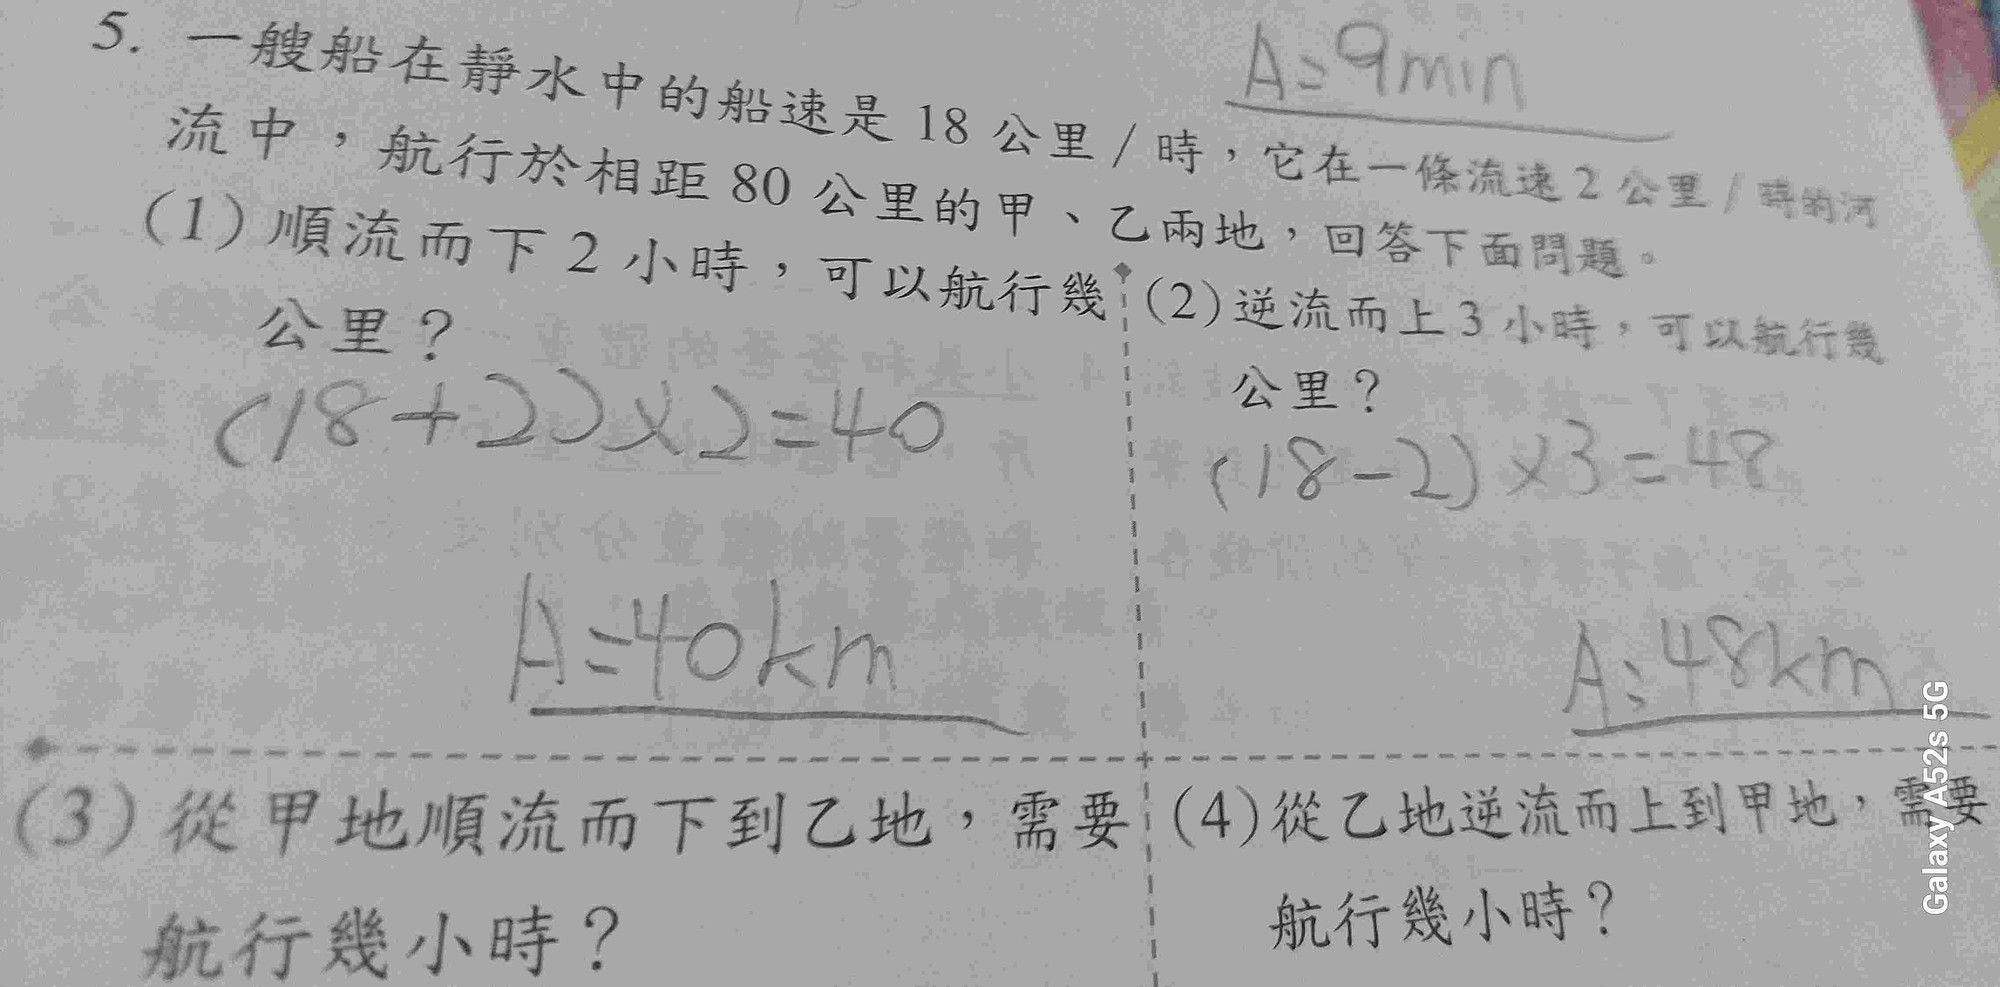 A=9min
5. 一艘船在靜水中的船速是 18 公里/時，它在一條流速 2 公里/時的河
流中，航行於相距 80 公里的甲、乙兩地，回答下面問題。
(1) 順流而下 2 小時，可以航行幾
公里？
(18+2)×2=40
A=40km
(2) 逆流而上 3 小時，可以航行幾
公里？
(18-2)×3=48
A:48km
(3) 從甲地順流而下到乙地，需要
航行幾小時？
(4) 從乙地逆流而上到甲地，需要
航行幾小時？
Galaxy A52s 5G